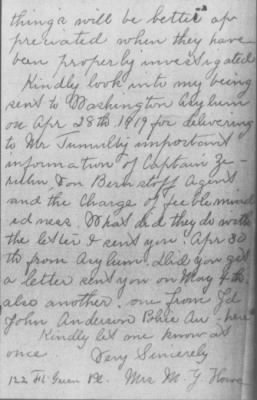 things will be better ap
preciated when they have
been properly investigated
Kindly look into my being
sent to Washington Asylum
on Apr 28th 1919 for delivering
to Mr Tumulty important
information of Captain
Von Bernstoff Agent
and the Charge of feeble mind
ed ness. What did they do with
the letter I sent you. Apr 30
th from Asylum. Did you get
a letter sent you on May 4th
also another one from
John Anderson Ave here
Kindly let me know at
once Very Sincerely
122 Green Mrs M. G. Howe